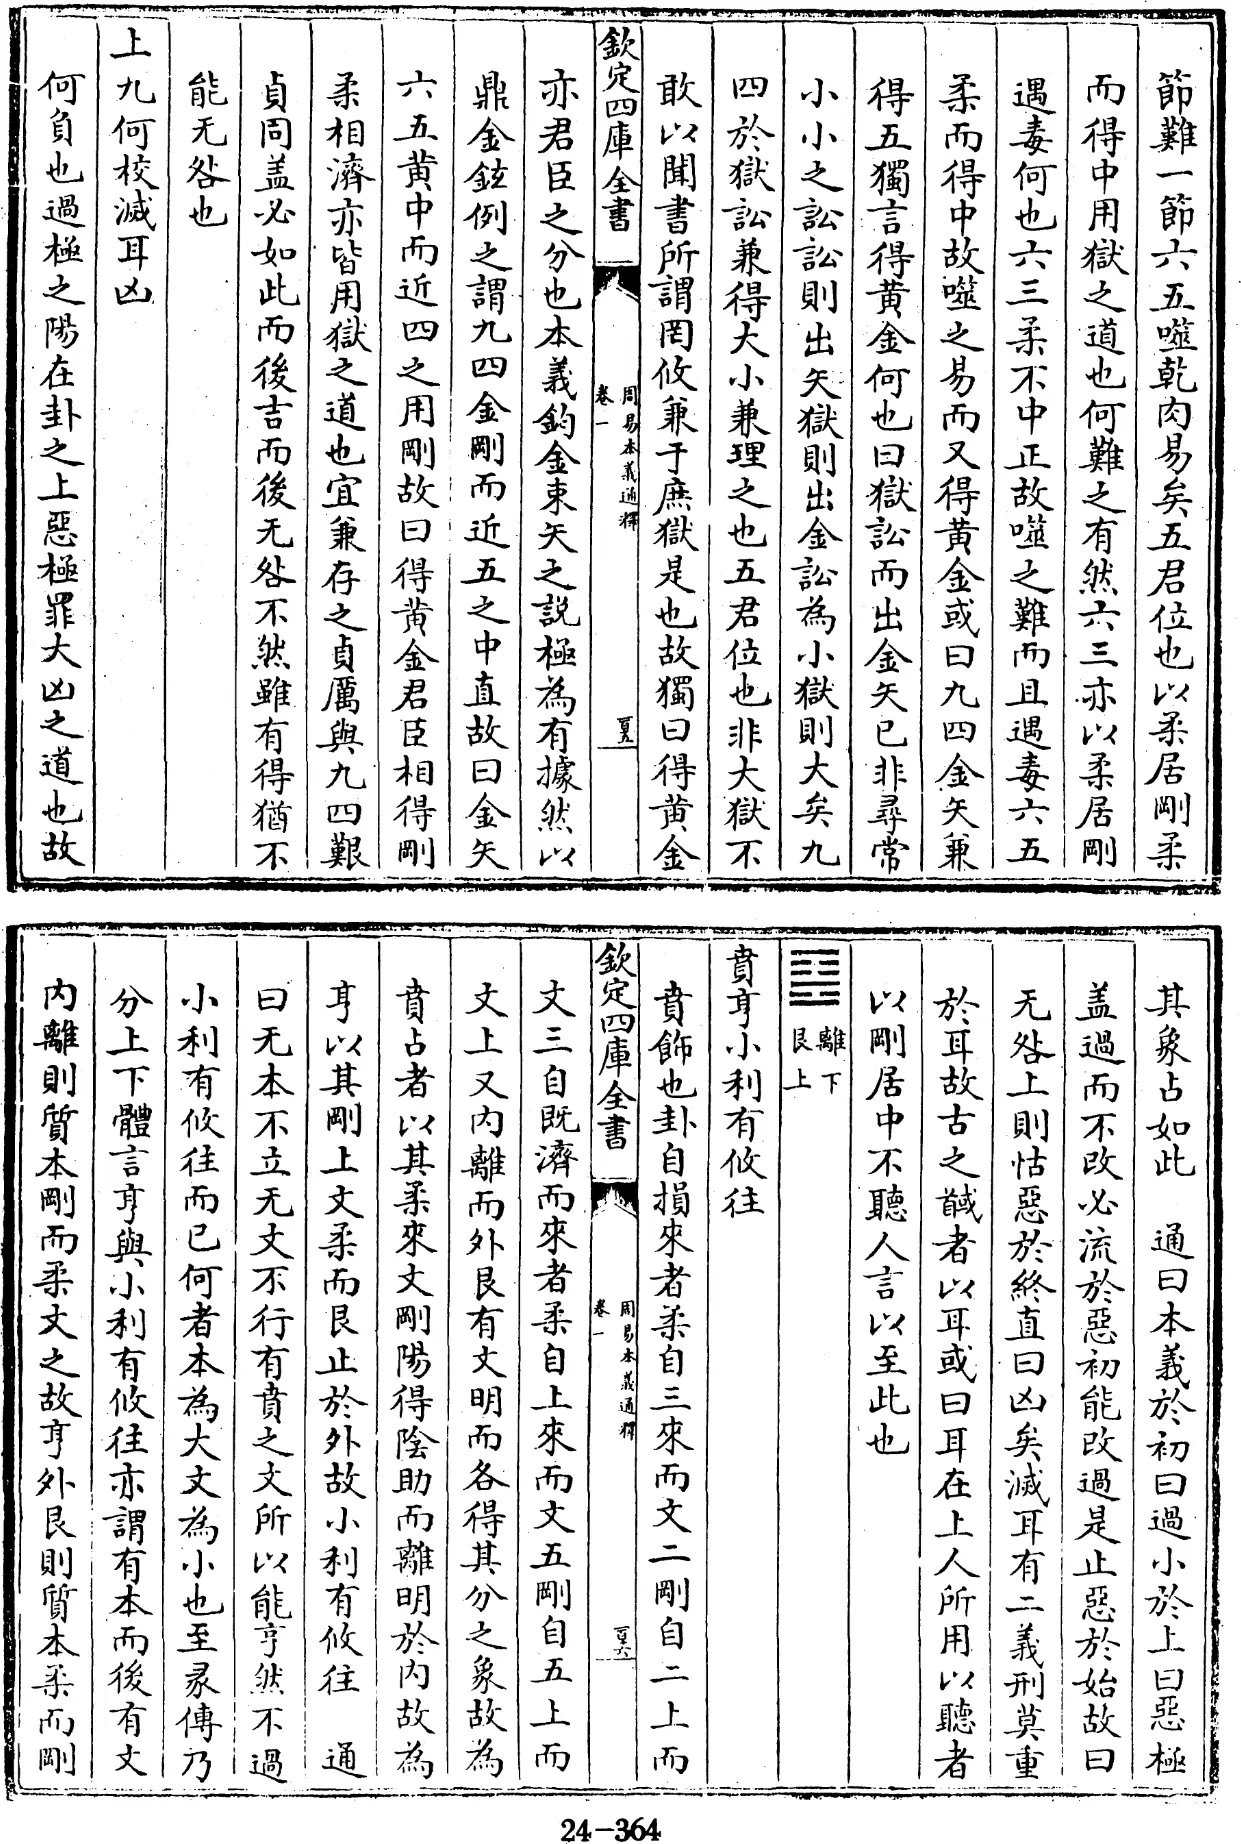 節難一節六五噬乾肉易矣五君位也以柔居剛柔
而得中用獄之道也何難之有然六三亦以柔居剛
遇毒何也六三柔不中正故噬之難而且遇毒六五
柔而得中故噬之易而又得黄金或曰九四金矢兼
得五獨言得黄金何也曰獄訟而出金矢已非尋常
小小之訟訟則出矢獄則出金訟為小獄則大矣九
四於獄訟兼得大小兼理之也五君位也非大獄不
敢以聞書所謂罔攸兼于庶獄是也故獨曰得黄金
欽定四庫全書
周易本義通釋
卷一
亦君臣之分也本義鈞金束矢之説極為有據然以
鼎金鉉例之謂九四金剛而近五之中直故曰金矢
六五黄中而近四之用剛故曰得黄金君臣相得剛
柔相濟亦皆用獄之道也宜兼存之貞厲與九四艱
貞同盖必如此而後吉而後无咎不然雖有得猶不
能无咎也
上九何校滅耳凶
何負也過極之陽在卦之上惡極罪大凶之道也故
其象占如此 通曰本義於初曰過小於上曰惡極
盖過而不改必流於惡初能改過是止惡於始故曰
无咎上則怙惡於終直曰凶矣滅耳有二義刑莫重
於耳故古之馘者以耳或曰耳在上人所用以聽者
以剛居中不聽人言以至此也
離下
艮上
賁亨小利有攸往
賁飾也卦自損來者柔自三來而文二剛自二上而
欽定四庫全書
周易本義通釋
卷一
文三自既濟而來者柔自上來而文五剛自五上而
文上又内離而外艮有文明而各得其分之象故為
賁占者以其柔來文剛陽得陰助而離明於内故為
亨以其剛上文柔而艮止於外故小利有攸往 通
曰无本不立无文不行有賁之文所以能亨然不過
小利有攸往而已何者本為大文為小也至彖傳乃
分上下體言亨與小利有攸往亦謂有本而後有文
内離則質本剛而柔文之故亨外艮則質本柔而剛
24-364